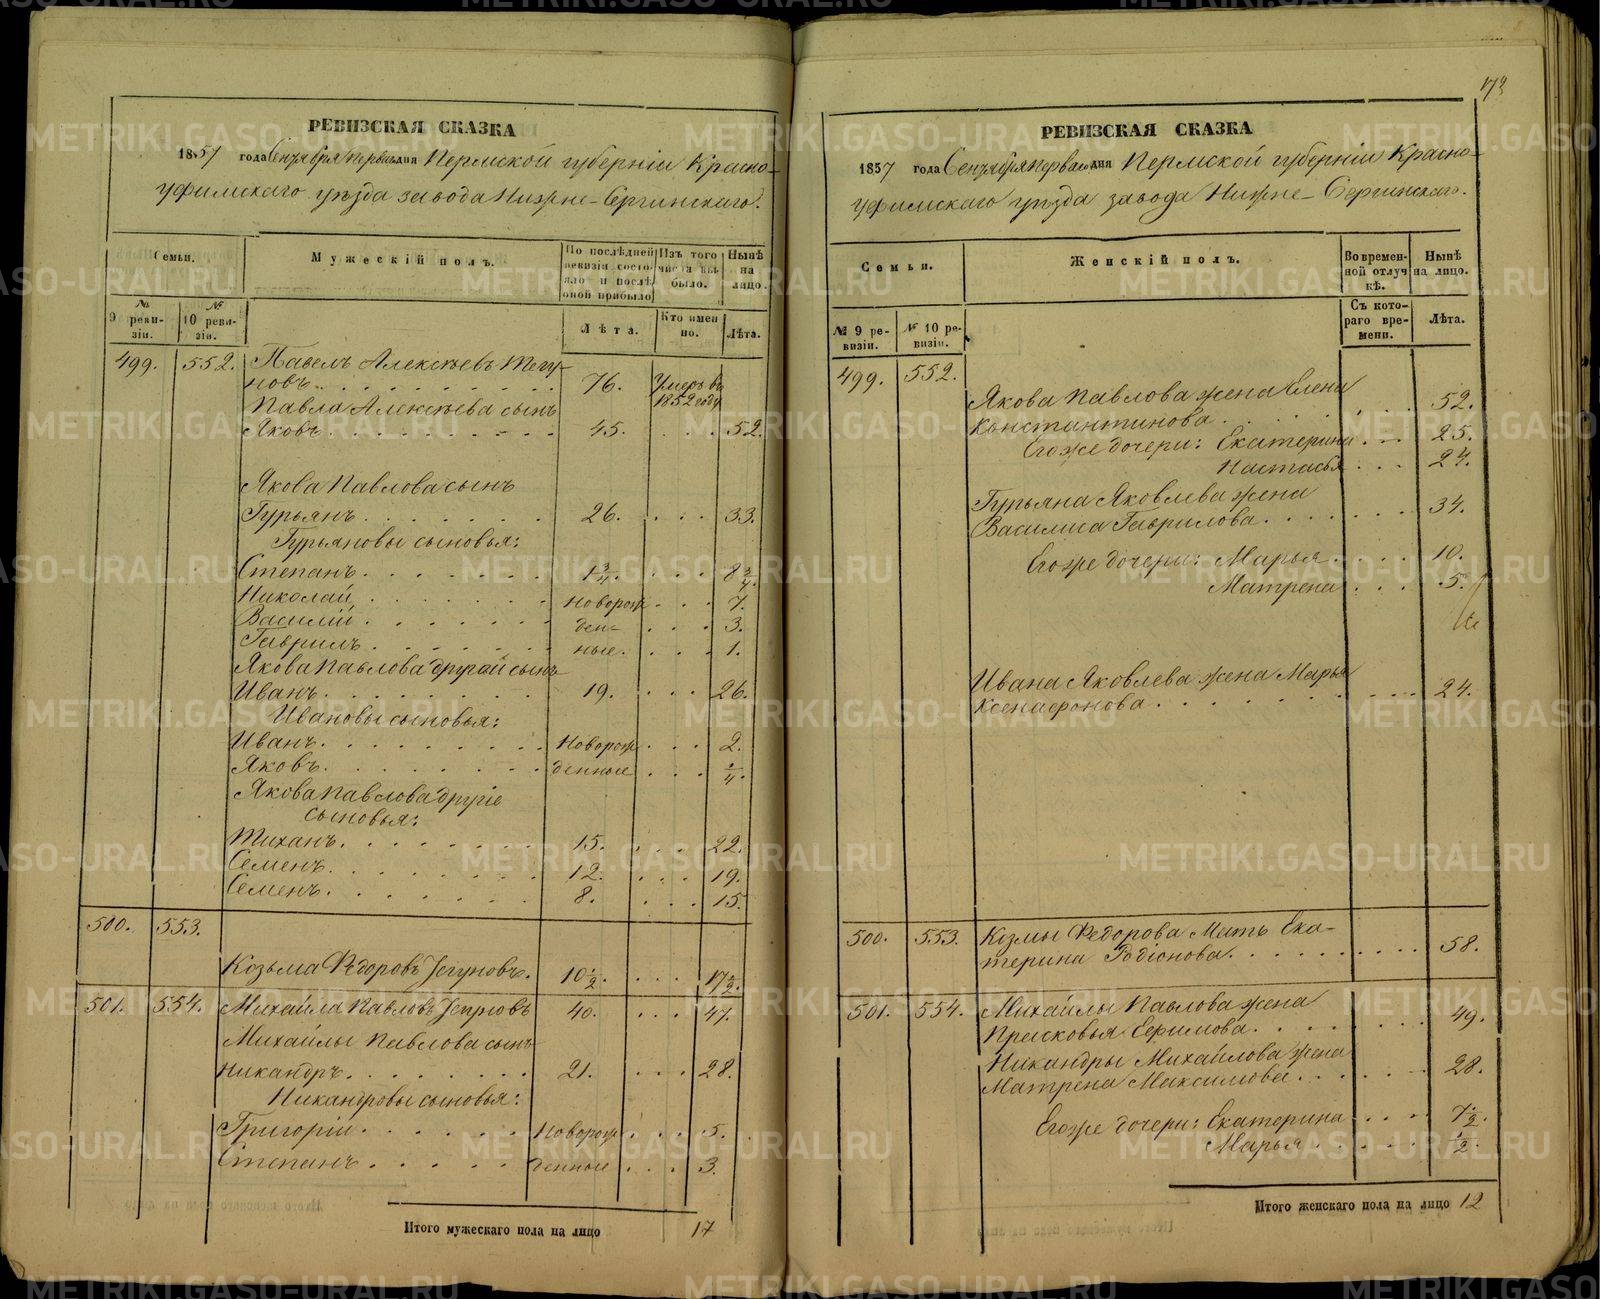 РЕВИЗСКАЯ СКАЗКА
1857 года Сентября первого дня Пермской губерніи Красно-
уфимскаго уѣзда завода Нижне-Сергинскаго.
Семьи.
Мужескій полъ.
По послѣдней ревизіи состояло и послѣ оной прибыло
Изъ того числа выбыло.
Нынѣ на лицо.
№ 9 ревизіи.
№ 10 ревизіи.
Лѣта.
Кто именно.
Лѣта.
499. 552. Павелъ Алексѣевъ Тегу-
новъ 76. Умеръ въ 1852 году
Павла Алексѣева сынъ
Яковъ 45. 52.
Якова Павлова сынъ
Гурьянъ 26. 33.
Гурьяновы сыновья:
Степанъ 1 3/4. 8 3/4.
Николай Новорож 7.
Василій ден- 3.
Гаврилъ ные. 1.
Якова Павлова другой сынъ
Иванъ 19. 26.
Ивановы сыновья:
Иванъ Новорож 2.
Яковъ денные 1/4.
Якова Павлова другіе
сыновья:
Тиханъ 15. 22.
Семенъ 12. 19.
Семенъ 8. 15.
500. 553.
Козьма Ѳедоровъ Тегуновъ. 10 1/2. 17 1/2.
501. 554. Михайла Павловъ Тегуновъ 40. 47.
Михайлы Павлова сынъ
Никандръ 21. 28.
Никандровы сыновья:
Григорій Новорож 5.
Степанъ денные 3.
Итого мужескаго пола на лицо 17
РЕВИЗСКАЯ СКАЗКА
1857 года Сентября первого дня Пермской губерніи Красно-
уфимскаго уѣзда завода Нижне-Сергинскаго.
Семьи.
Женскій полъ.
Во временной отлучкѣ.
Нынѣ на лицо.
№ 9 ревизіи.
№ 10 ревизіи.
Съ котораго времени.
Лѣта.
499. 552.
Якова Павлова жена Елена
Константинова 52.
Егоже дочери: Екатерина 25.
Настасья 24.
Гурьяна Яковлева жена
Василиса Гаврилова 34.
Егоже дочери: Марья 10.
Матрена 5.
Ивана Яковлева жена Марья
Ксенафонова 24.
500. 553. Козмы Ѳедорова Мать Ека-
терина Родіонова 58.
501. 554. Михайлы Павлова жена
Прасковья Ефимова 49.
Никандры Михайлова жена
Матрена Максимова 28.
Егоже дочери: Екатерина 7 1/2.
Марья 1/2.
Итого женскаго пола на лицо 12
METRIKI.GASO-URAL.RU